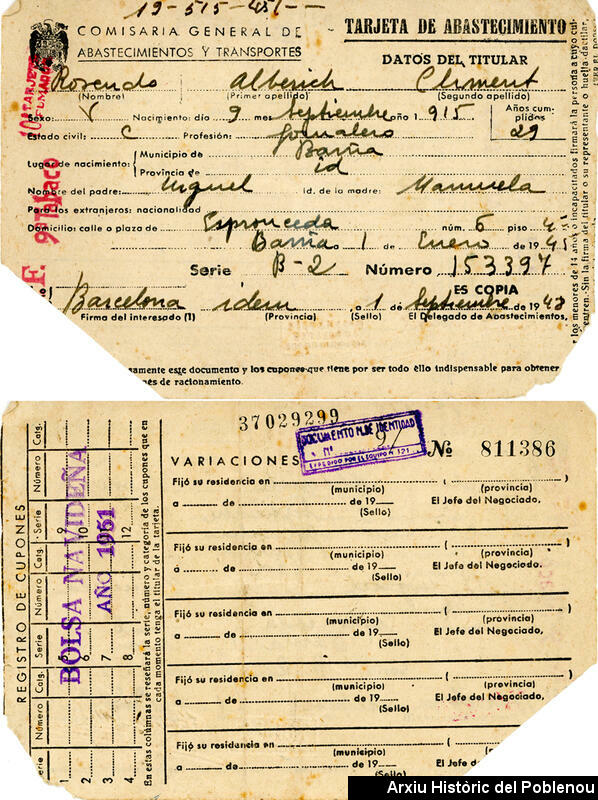 19-515-451--
COMISARIA GENERAL DE
ABASTECIMIENTOS Y TRANSPORTES
TARJETA DE ABASTECIMIENTO
DATOS DEL TITULAR
Rosendo Alberich Climent
(Nombre) (Primer apellido) (Segundo apellido)
Sexo: V Nacimiento: día 9 mes septiembre año 1915
Años cumplidos 29
Estado civil: C Profesión: Jornalero
Lugar de nacimiento: Municipio de Barña
Provincia de id
Nombre del padre: Miguel id. de la madre: Manuela
Para los extranjeros: nacionalidad
Domicilio: calle o plaza de Espronceda núm. 6 piso 4-5
Barña 1 de Enero de 1945
Serie B-2 Número 153397
ES COPIA
Barcelona idem a 1 Septiembre de 1943
Firma del interesado (1) (Provincia) (Sello) El Delegado de Abastecimientos,
samente este documento y los cupones que tiene por ser todo ello indispensable para obtener
és de racionamiento.
los menores de 14 años o incapacitados firmará la persona a cuyo cui-
o su representante o huella dactilar,
entren. Sin la firma del titular
Tabaco
37029299
DOCUMENTO N. DE IDENTIDAD
N.º 97
EXPEDIDO POR EL EQUIPO N.º 121
Nº 811386
VARIACIONES
Fijó su residencia en ( )
(municipio) (provincia)
a de de 19 El Jefe del Negociado,
(Sello)
Fijó su residencia en ( )
(municipio) (provincia)
a de de 19 El Jefe del Negociado,
(Sello)
Fijó su residencia en ( )
(municipio) (provincia)
a de de 19 El Jefe del Negociado,
(Sello)
Fijó su residencia en ( )
(municipio) (provincia)
a de de 19 El Jefe del Negociado,
(Sello)
Fijó su residencia en
(municipio) (provincia)
a de de 19 El Jefe del Negociado,
(Sello)
REGISTRO DE CUPONES
Serie Número Catg. Serie Número Catg. Serie Número Catg.
1 5 9
2 6 10
3 7 11
4 8 12
BOLSA NAVIDEÑA
AÑO 1951
En estas columnas se reseñará la serie, número y categoría de los cupones que en
cada momento tenga el titular de la tarjeta.
Arxiu Històric del Poblenou